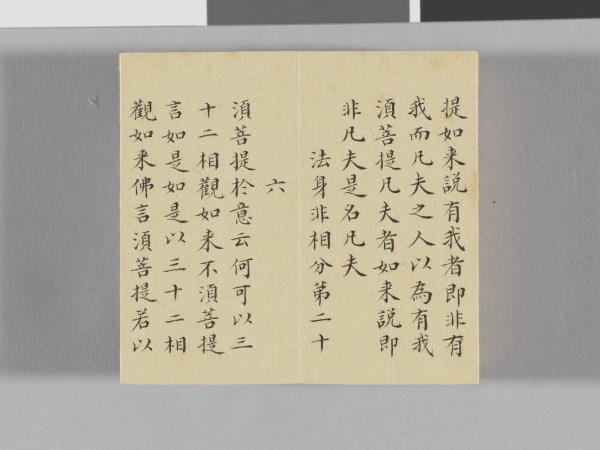 提如来説有我者即非有
我而凡夫之人以為有我
湏菩提凡夫者如来説即
非凡夫是名凡夫
法身非相分第二十
六
湏菩提於意云何可以三
十二相觀如来不湏菩提
言如是如是以三十二相
觀如来佛言湏菩提若以